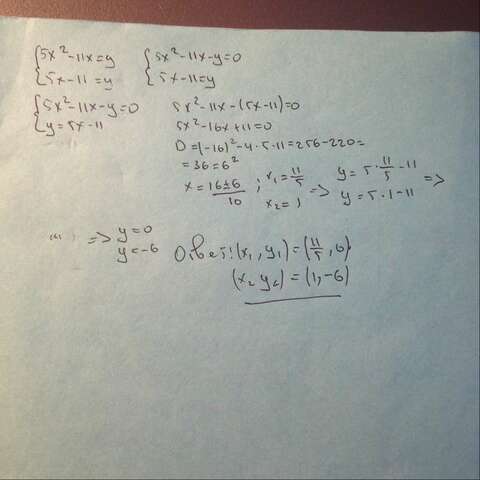 {5x²-11x=y {5x²-11x-y=0
{5x-11=y {5x-11=y
{5x²-11x-y=0 5x²-11x-(5x-11)=0
{y=5x-11 5x²-16x+11=0
D=(-16)²-4·5·11=256-220=
=36=6²
x=16±6/10 ; x₁=11/5 => y=5·11/5-11 =>
x₂=1 y=5·1-11
=> y=0
y=-6
Ответ: (x₁,y₁)=(11/5,0).
(x₂ y₂)=(1,-6)